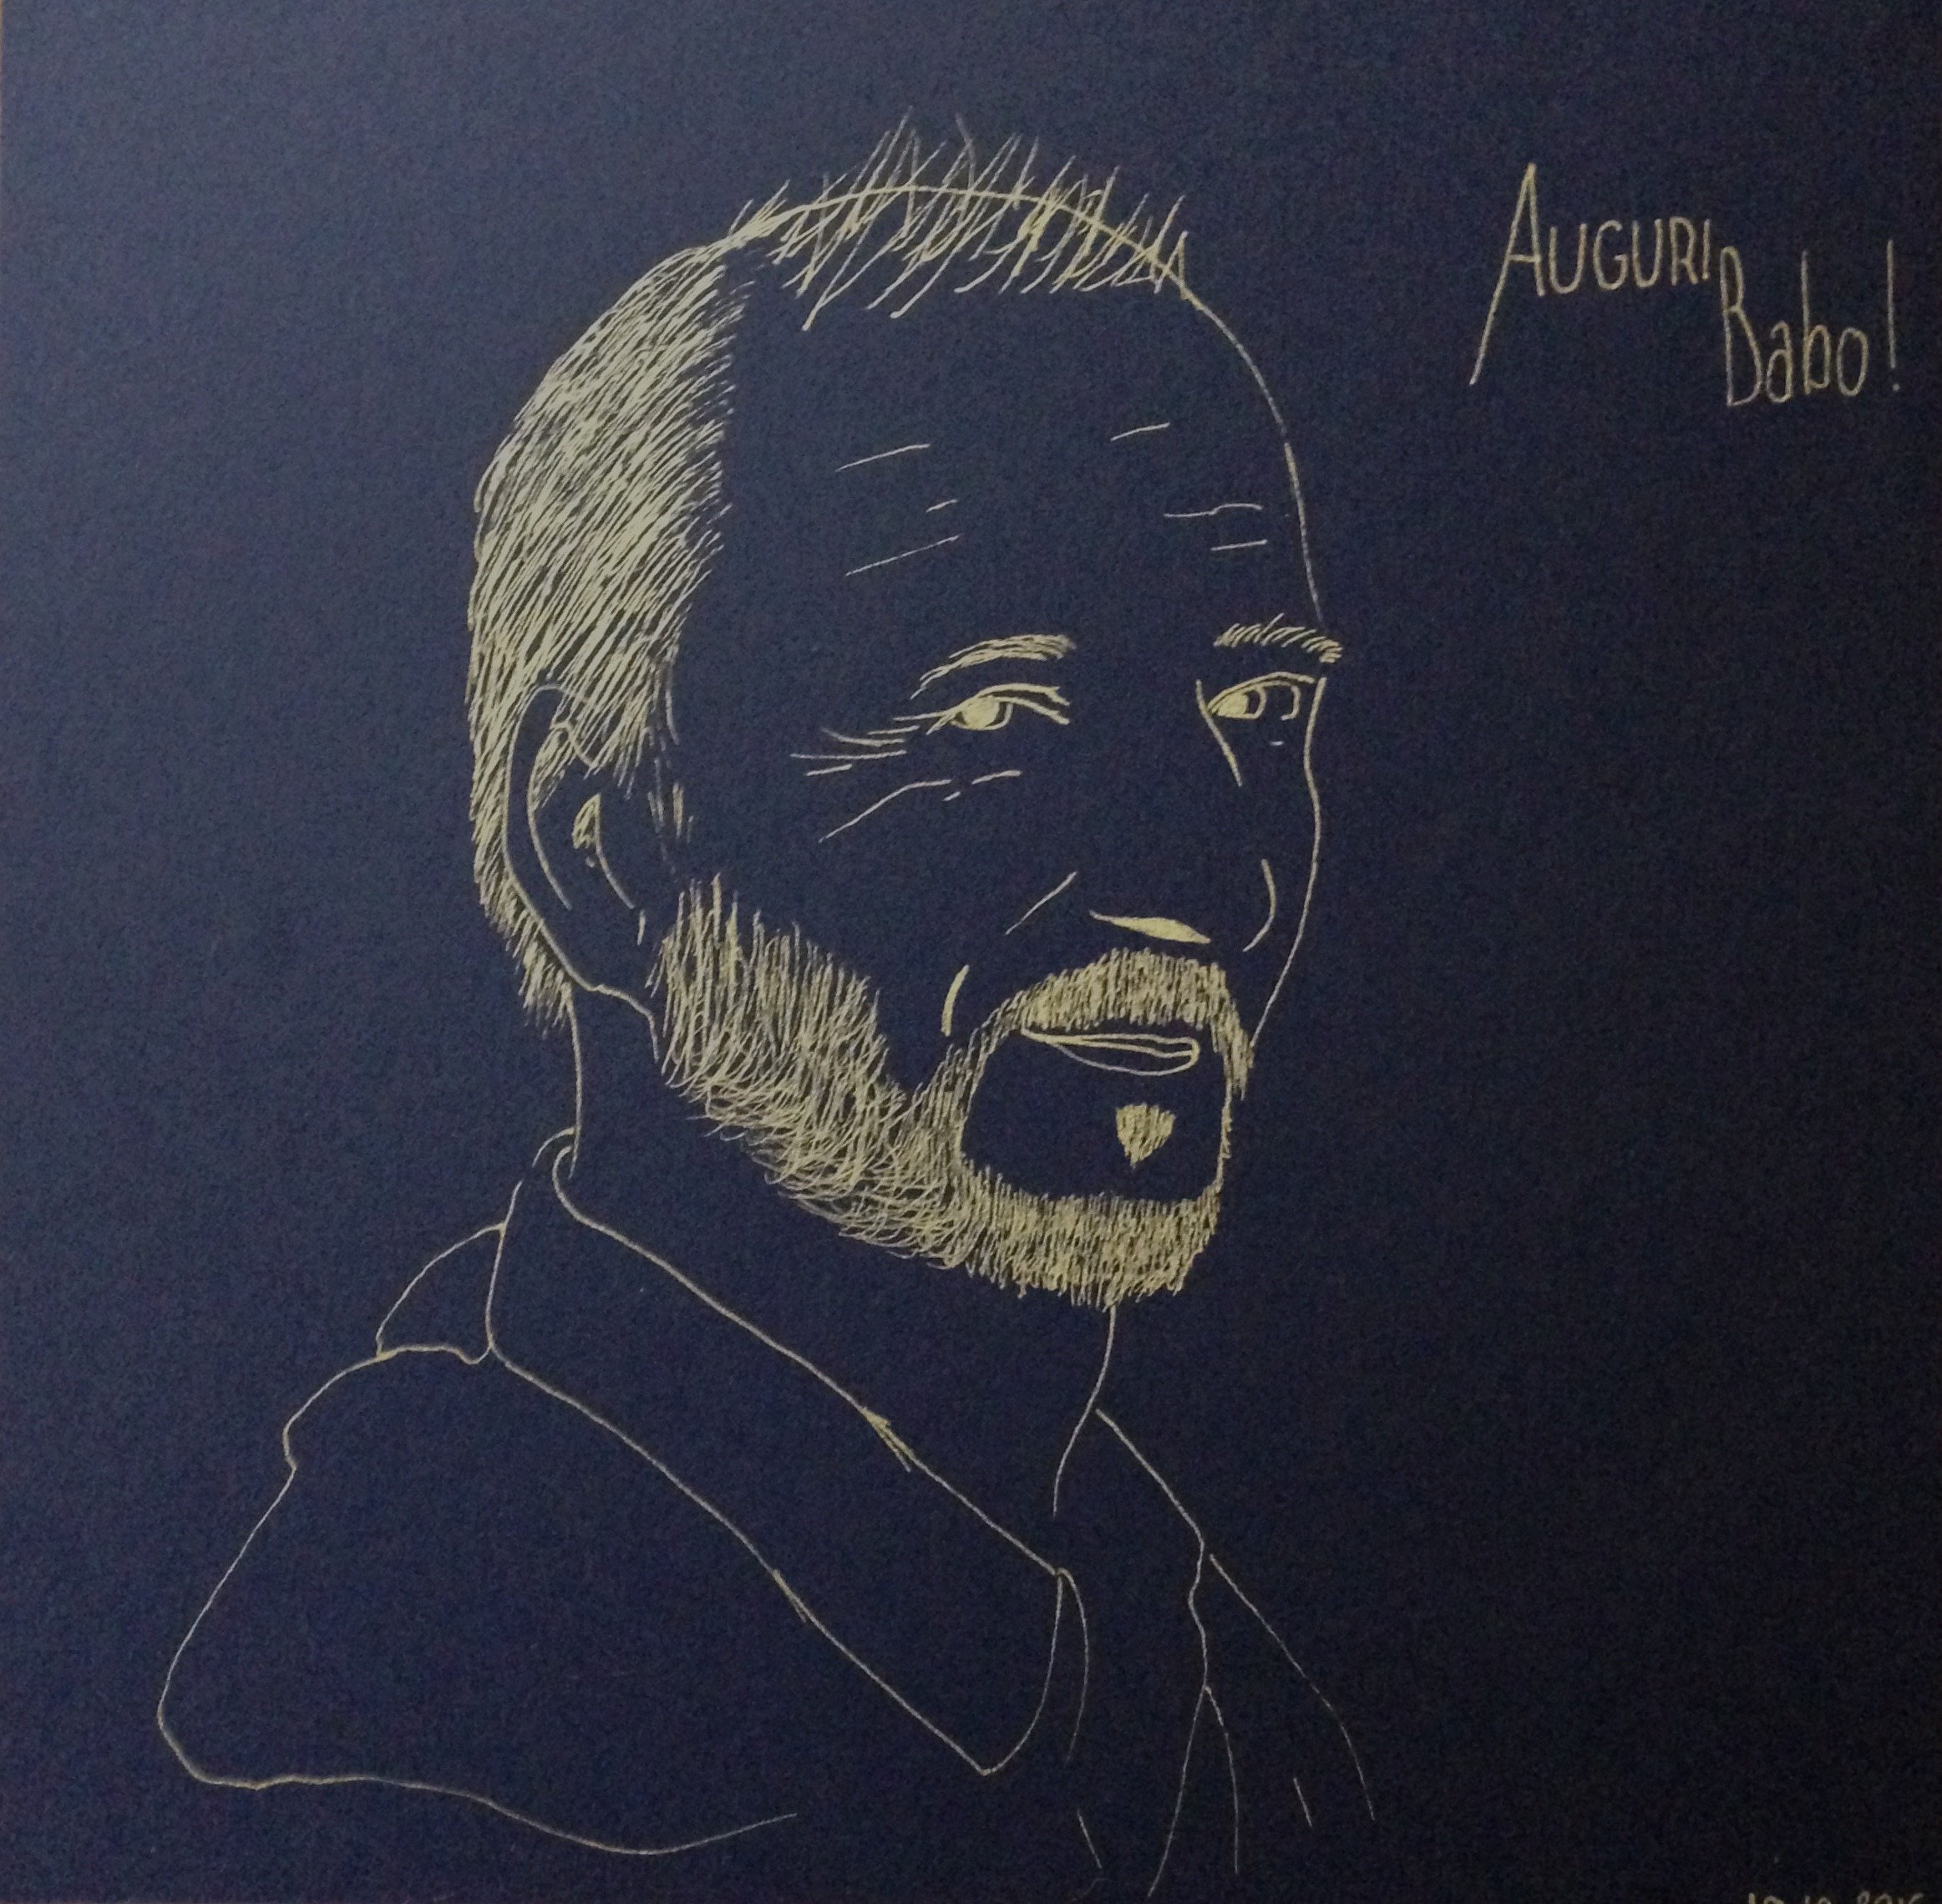 AUGURI
Babo!